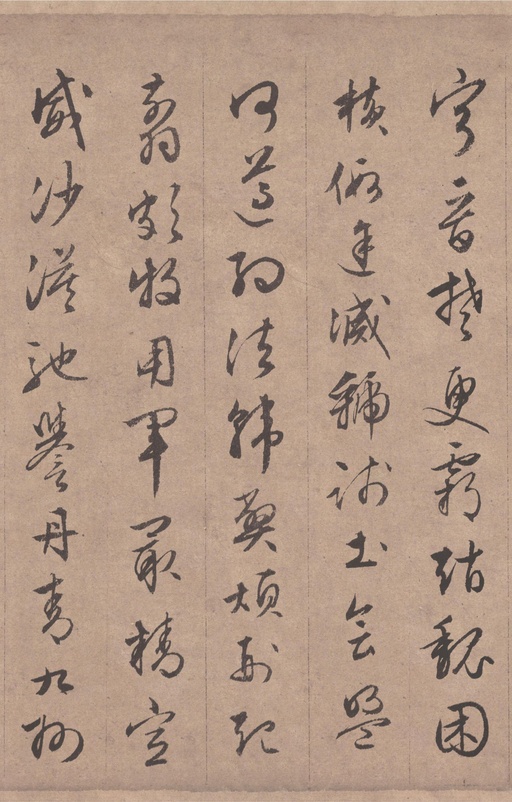 寧晉楚更霸趙魏困
橫假途滅虢踐土會盟
何遵約法韓弊煩刑起
翦頗牧用軍最精宣
威沙漠馳譽丹青九州